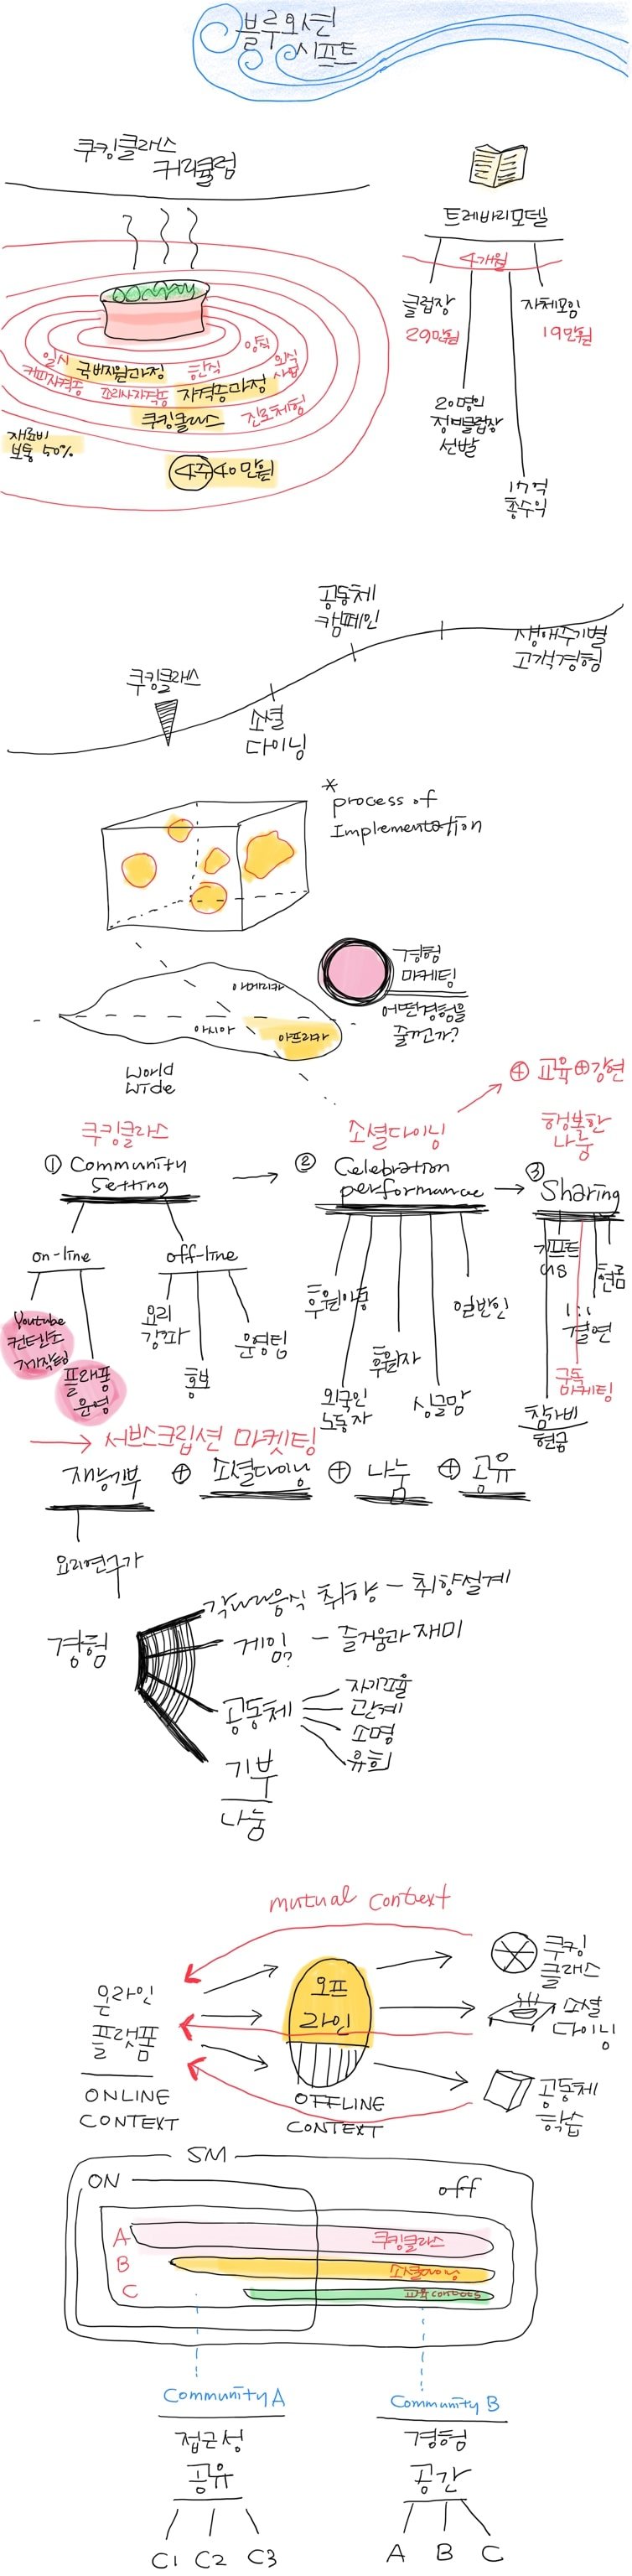 블루오션
시프트
쿠킹클래스
커리큘럼
양식
일식
국비지원과정
한식
외식
사업
커피자격증
조리사자격증
자격증과정
쿠킹클래스
진로체험
재료비
보통 50%
4주 40만원
트레바리모델
4개월
클럽장
29만원
자체모임
19만원
20명의
정예클럽장
선발
17억
총수익
공동체
캠페인
생애주기별
고객경험
쿠킹클래스
소셜
다이닝
* process of
Implementation
경험
마케팅
어떤경험을
줄껀가?
아메리카
아시아
아프리카
World
wide
④ 교육⊕강현
쿠킹클래스
소셜다이닝
행복한
나눔
① Community
Setting
② Celebration
performance
③
Sharing
on-line
off-line
Youtube
컨텐츠
제작팀
플래폼
운영
요리
강좌
홍보
운영팀
후원아동
외국인
노동자
후원자
싱글맘
일반인
기프트
참가비
현금
구독
마케팅
1:1
결연
현금
서브스크립션 마켓팅
재능기부 ⊕ 소셜다이닝 ⊕ 나눔 ⊕ 공유
요리연구가
경험
각나라음식 취향 - 취향설계
게임? - 즐거움과 재미
공동체
자기표율
관계
소명
유희
기부
나눔
mutual context
온라인
플랫폼
ONLINE
CONTEXT
오프
라인
OFFLINE
CONTEXT
쿠킹
클래스
소셜
다이닝
공동체
학습
SM
ON
off
A
쿠킹클라스
B
소셜다이닝
C
교육contents
Community A
접근성
공유
C1 C2 C3
Community B
경험
공간
A B C